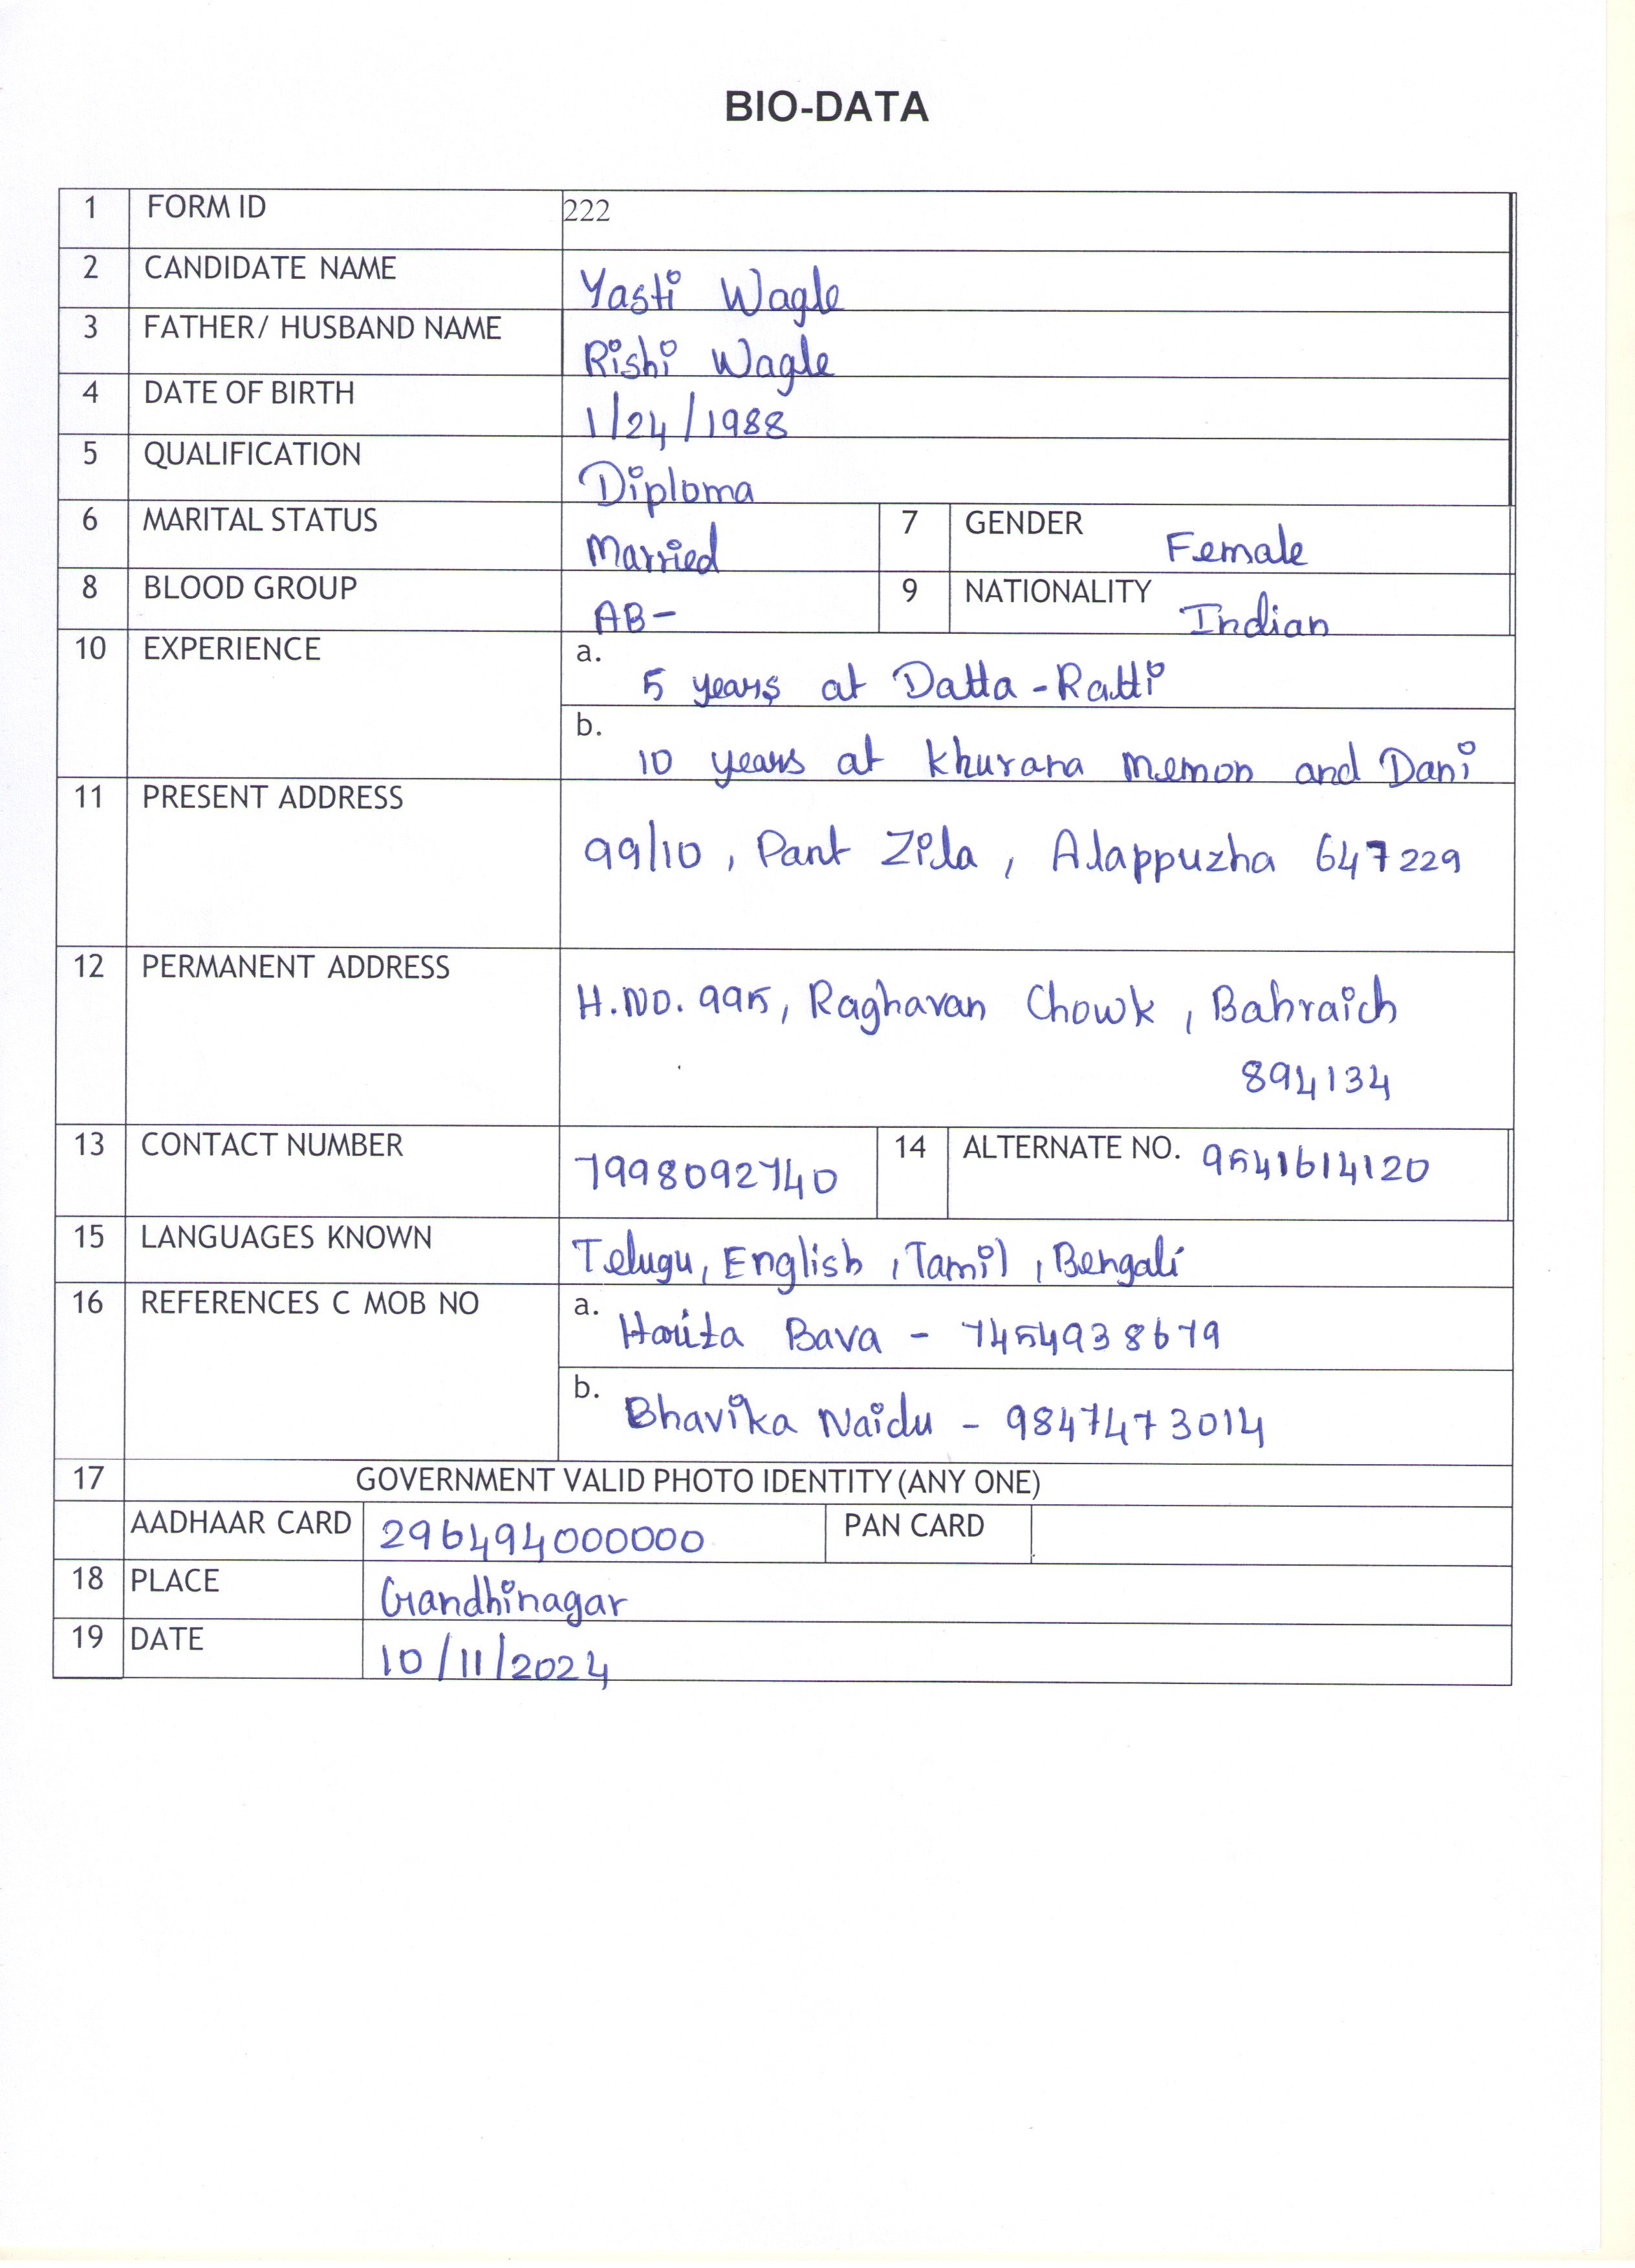 BIO-DATA
1 FORM ID 222
2 CANDIDATE NAME Yasti Wagle
3 FATHER/ HUSBAND NAME Rishi Wagle
4 DATE OF BIRTH 1/24/1988
5 QUALIFICATION Diploma
6 MARITAL STATUS Married 7 GENDER Female
8 BLOOD GROUP AB- 9 NATIONALITY Indian
10 EXPERIENCE a. 5 years at Datta-Ratti
b. 10 years at Khurana Memon and Dani
11 PRESENT ADDRESS 99/10, Pant Zila, Alappuzha 647229
12 PERMANENT ADDRESS H.NO. 995, Raghavan Chowk, Bahraich
894134
13 CONTACT NUMBER 7998092740 14 ALTERNATE NO. 9541614120
15 LANGUAGES KNOWN Telugu, English, Tamil, Bengali
16 REFERENCES C MOB NO a. Harita Bava - 7454938679
b. Bhavika Naidu - 9847473014
17 GOVERNMENT VALID PHOTO IDENTITY (ANY ONE)
AADHAAR CARD 296494000000 PAN CARD
18 PLACE Gandhinagar
19 DATE 10/11/2024